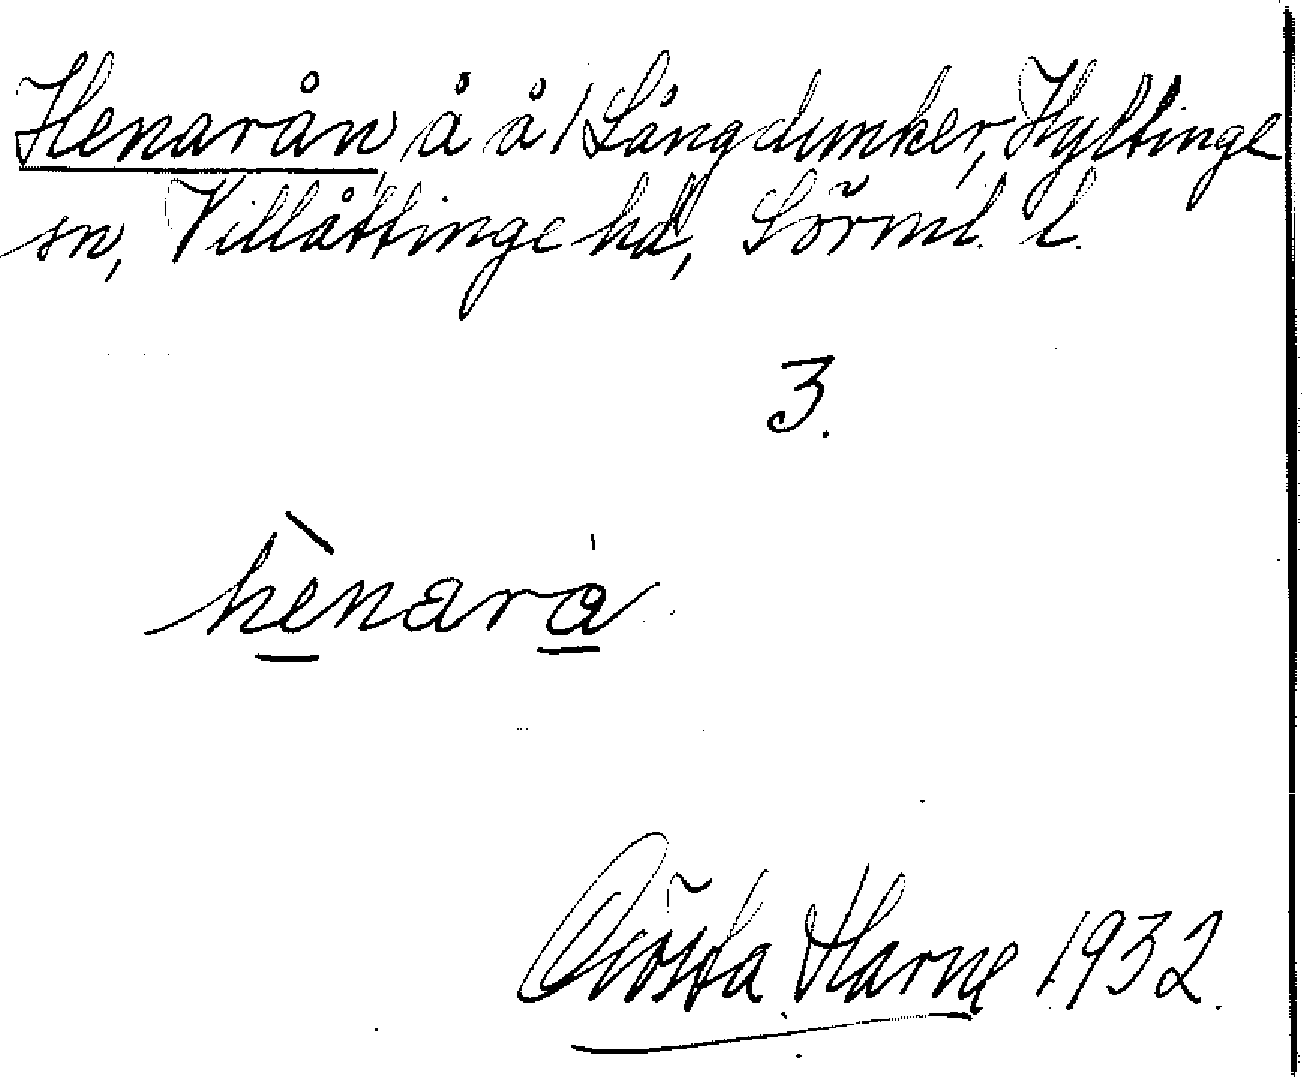 Henarån, å å/ Långdunker, Hyltinge
sn, Villåttinge hd, Sörml. l.
3.
hènarå
Gösta Harne 1932.